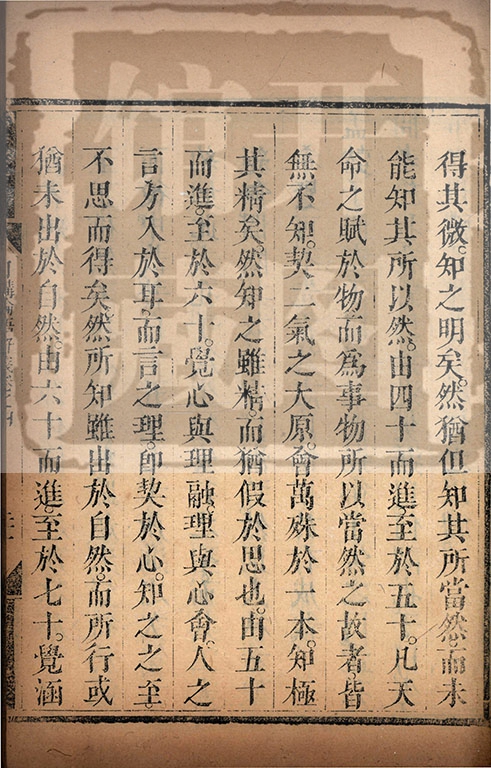 得其微。知之明矣。然猶但知其所當然。而未
能知其所以然。由四十而進。至於五十。凡天
命之賦於物而爲事物所以當然之故者。皆
無不知。契二氣之大原。會萬殊於一本。知極
其精矣。然知之雖精。而猶假於思也。由五十
而進。至於六十。覺心與理融。理與心會。人之
言方入於耳。而言之理。卽契於心。知之之至。
不思而得矣。然所知雖出於自然。而所行或
猶未出於自然。由六十而進。至於七十。覺涵